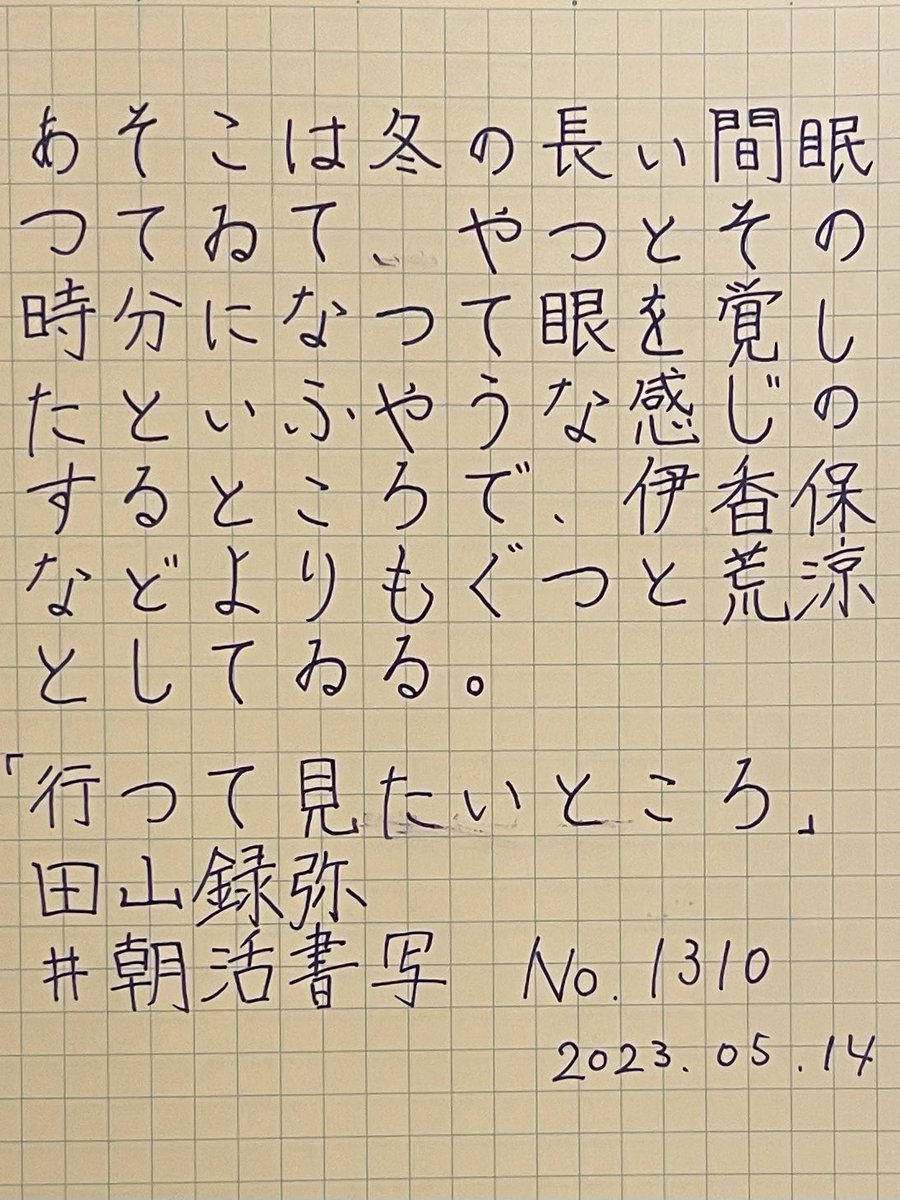 あそこは冬の長い間眠
つてゐて、やつとその
時分になつて眼を覚し
たといふやうな感じの
するところで、伊香保
などよりもぐつと荒涼
としてゐる。
「行つて見たいところ」
田山録弥
#朝活書写 No.1310
2023.05.14